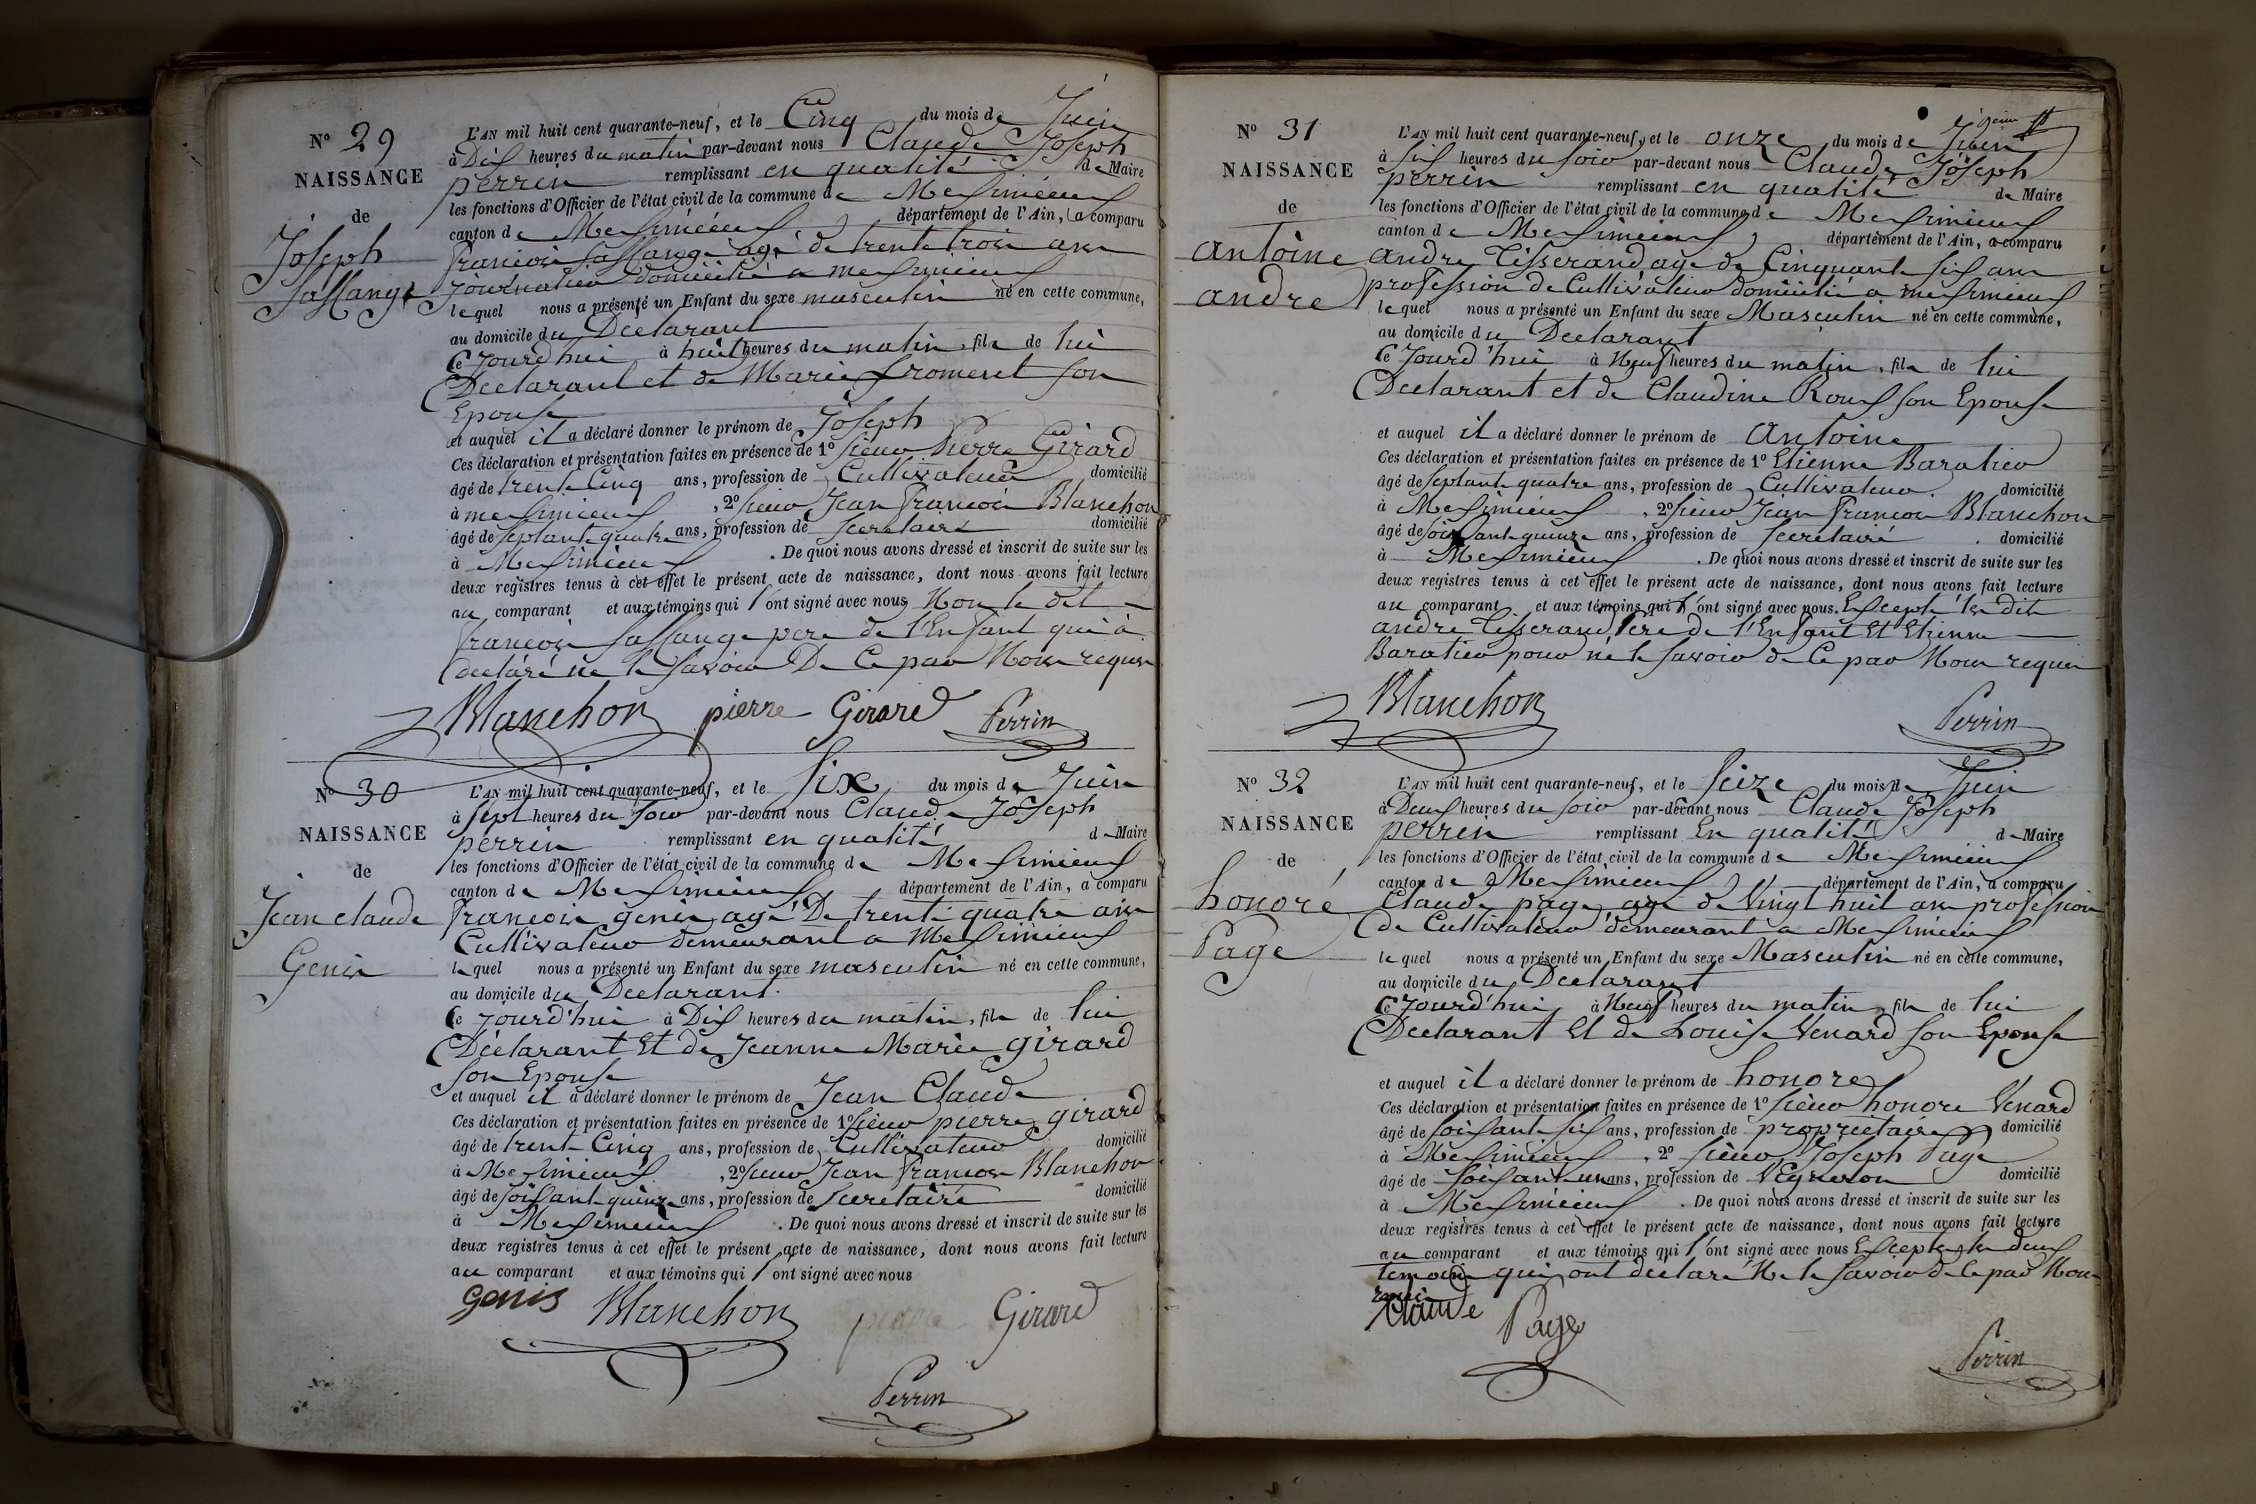 N° 29
NAISSANCE
de
Joseph
Sassange
L'AN mil huit cent quarante-neuf, et le Cinq du mois de Juin
à Dix heures du matin par-devant nous Claude Joseph
perrin remplissant en qualité de Maire
les fonctions d'Officier de l'état civil de la commune de Messimieux
canton de Messimieux département de l'Ain, a comparu
françois Sassange agé de trente trois ans
Journalier domicilié a messimieux
lequel nous a présenté un Enfant du sexe masculin né en cette commune,
au domicile du Declarant
Ce jourd'hui à huit heures du matin, fils de lui
Declarant et de Marie froment son
Epouse
et auquel il a déclaré donner le prénom de Joseph
Ces déclaration et présentation faites en présence de 1° sieur Pierre Girard
âgé de trente Cinq ans, profession de Cultivateur domicilié
à messimieux, 2° sieur Jean françois Blanchon
âgé de septante quatre ans, profession de Secretaire domicilié
à Messimieux. De quoi nous avons dressé et inscrit de suite sur les
deux registres tenus à cet effet le présent acte de naissance, dont nous avons fait lecture
au comparant et aux témoins qui l'ont signé avec nous Non le dit
françois Sassange pere de l'Enfant qui à
declaré ne le savoir De Ce par Nous requis
Blanchon pierre Girard Perrin
N° 30
NAISSANCE
de
Jean claude
Genis
L'AN mil huit cent quarante-neuf, et le Six du mois de Juin
à sept heures du soir par-devant nous Claude Joseph
perrin remplissant en qualité de Maire
les fonctions d'Officier de l'état civil de la commune de Messimieux
canton de Messimieux département de l'Ain, a comparu
françois genis agé De trente quatre ans
Cultivateur demeurant a Messimieux
lequel nous a présenté un Enfant du sexe masculin né en cette commune,
au domicile du Declarant.
Ce jourd'hui à Dix heures du matin, fils de lui
Déclarant Et de Jeanne Marie girard
son Epouse
et auquel il a déclaré donner le prénom de Jean Claude
Ces déclaration et présentation faites en présence de 1° sieur pierre girard
âgé de trente Cinq ans, profession de Cultivateur domicilié
à Messimieux, 2° sieur Jean françois Blanchon
âgé de soixante quinze ans, profession de Secretaire domicilié
à Messimieux. De quoi nous avons dressé et inscrit de suite sur les
deux registres tenus à cet effet le présent acte de naissance, dont nous avons fait lecture
au comparant et aux témoins qui l'ont signé avec nous
Genis Blanchon pierre Girard
Perrin
N° 31
NAISSANCE
de
antoine
andre
L'AN mil huit cent quarante-neuf, et le onze du mois de Juin
à six heures du soir par-devant nous Claude Joseph
perrin remplissant en qualité de Maire
les fonctions d'Officier de l'état civil de la commune de Messimieux
canton de Messimieux département de l'Ain, a comparu
andre Tisserand agé de Cinquante six ans
profession de Cultivateur domicilié a messimieux
lequel nous a présenté un Enfant du sexe Masculin né en cette commune,
au domicile du Declarant
Ce jourd'hui à Neuf heures du matin, fils de lui
Declarant et de Claudine Roux son Epouse
et auquel il a déclaré donner le prénom de antoine
Ces déclaration et présentation faites en présence de 1° Etienne Baratier
âgé de septante quatre ans, profession de Cultivateur. domicilié
à Messimieux, 2° sieur Jean françois Blanchon
âgé de soixante quinze ans, profession de Secretaire domicilié
à Messimieux. De quoi nous avons dressé et inscrit de suite sur les
deux registres tenus à cet effet le présent acte de naissance, dont nous avons fait lecture
au comparant et aux témoins qui l'ont signé avec nous. Excepté les dit
andre Tisserand Pere de l'Enfant Et Etienne
Baratier pour ne le savoir de Ce par Nous requis
Blanchon Perrin
N° 32
NAISSANCE
de
honoré
Page
L'AN mil huit cent quarante-neuf, et le seize du mois de Juin
à Deux heures du soir par-devant nous Claude Joseph
perrin remplissant En qualité de Maire
les fonctions d'Officier de l'état civil de la commune de Messimieux
canton de Messimieux département de l'Ain, a comparu
Claude page agé de Vingt huit ans profession
de Cultivateur demeurant a Messimieux
lequel nous a présenté un Enfant du sexe Masculin né en cette commune,
au domicile du Declarant
Ce jourd'hui à Neuf heures du matin, fils de lui
Declarant Et de Louise Venard son Epouse
et auquel il a déclaré donner le prénom de honore
Ces déclaration et présentation faites en présence de 1° sieur honore Venard
âgé de soixante six ans, profession de proprietaire domicilié
à Messimieux, 2° sieur Joseph Page
âgé de soixante un ans, profession de Vigneron domicilié
à Messimieux. De quoi nous avons dressé et inscrit de suite sur les
deux registres tenus à cet effet le présent acte de naissance, dont nous avons fait lecture
au comparant et aux témoins qui l'ont signé avec nous Excepté les deux
temoins qui ont declaré Ne le savoir de Ce par Nous
requis
Claude Page Perrin